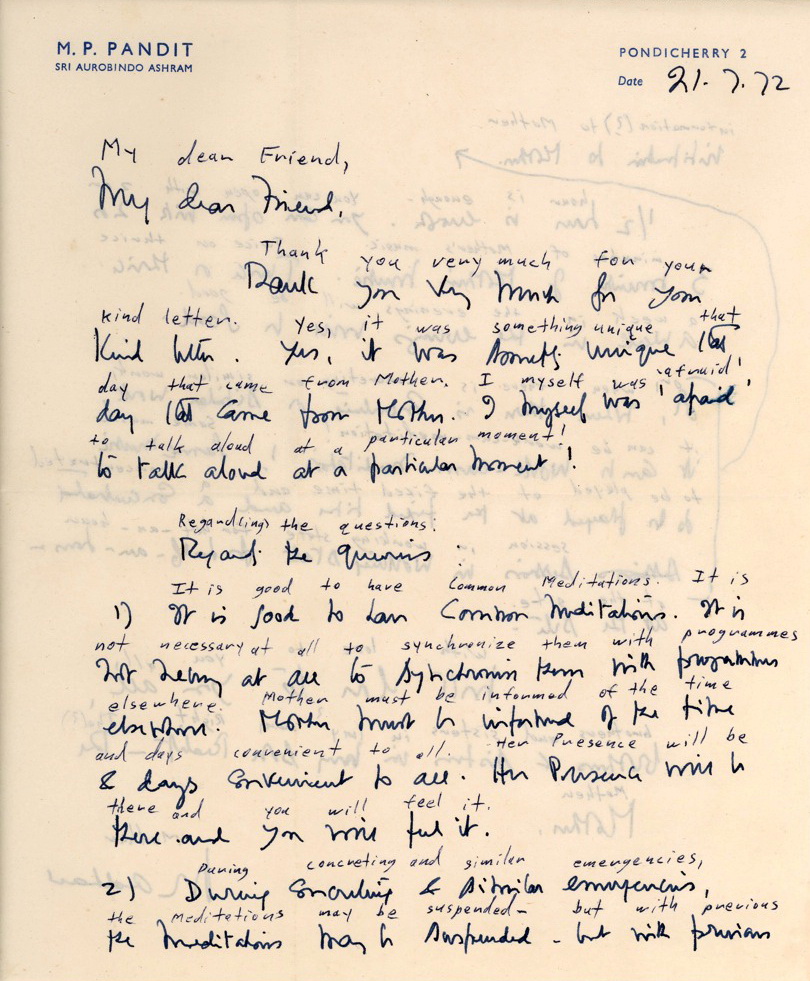 M. P. PANDIT
SRI AUROBINDO ASHRAM
PONDICHERRY 2
Date 21.7.72
My dear Friend,
My dear Friend,
Thank you very much for your
Thank you very much for your
kind letter. Yes, it was something unique that
kind letter. Yes, it was something unique that
day that came from Mother. I myself was 'afraid'
day that came from Mother. I myself was 'afraid'
to talk aloud at a particular moment!
to talk aloud at a particular moment!
Regarding the questions:
Regarding the queries:
It is good to have Common Meditations. It is
1) It is good to have Common Meditations. It is
not necessary at all to synchronize them with programmes
not necessary at all to synchronise them with programmes
elsewhere. Mother must be informed of the time
elsewhere. Mother must be informed of the time
and days convenient to all. Her Presence will be
& days convenient to all. Her Presence will be
there and you will feel it.
there and you will feel it.
During concreting and similar emergencies,
2) During concreting & similar emergencies,
the meditations may be suspended - but with previous
the meditations may be suspended - but with previous